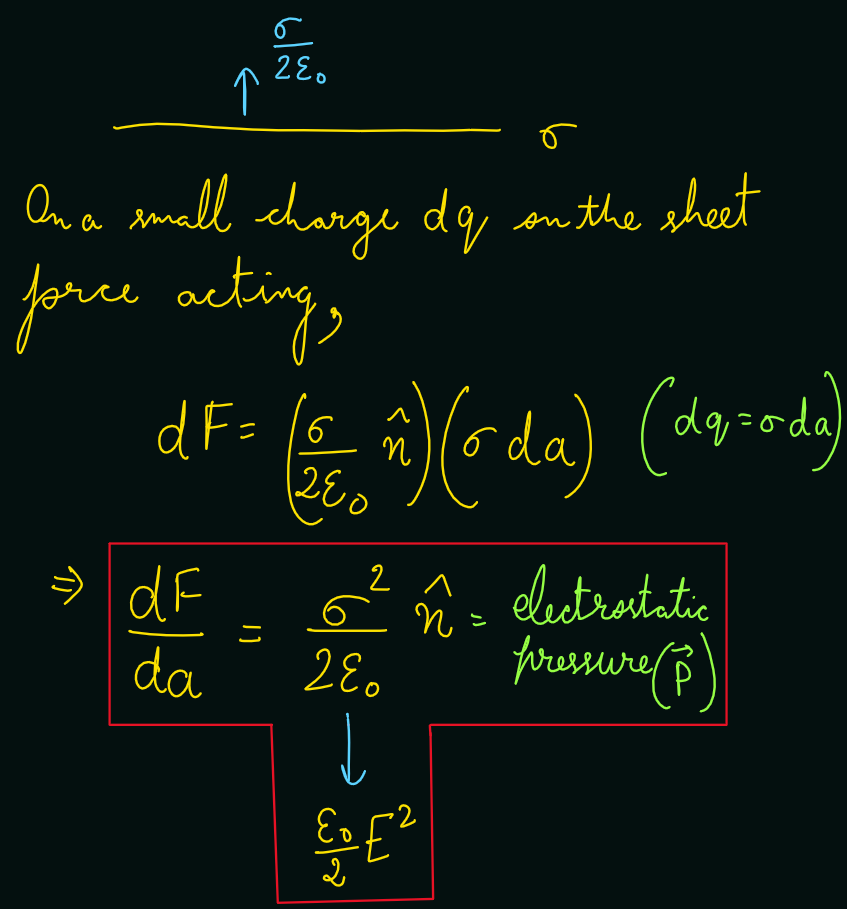 σ/2ε₀
σ
On a small charge dq on the sheet
force acting,
dF = (σ/2ε₀ n̂)(σ da) (dq = σ da)
⇒ dF/da = σ²/2ε₀ n̂ = electrostatic
pressure (P⃗)
ε₀/2 E²